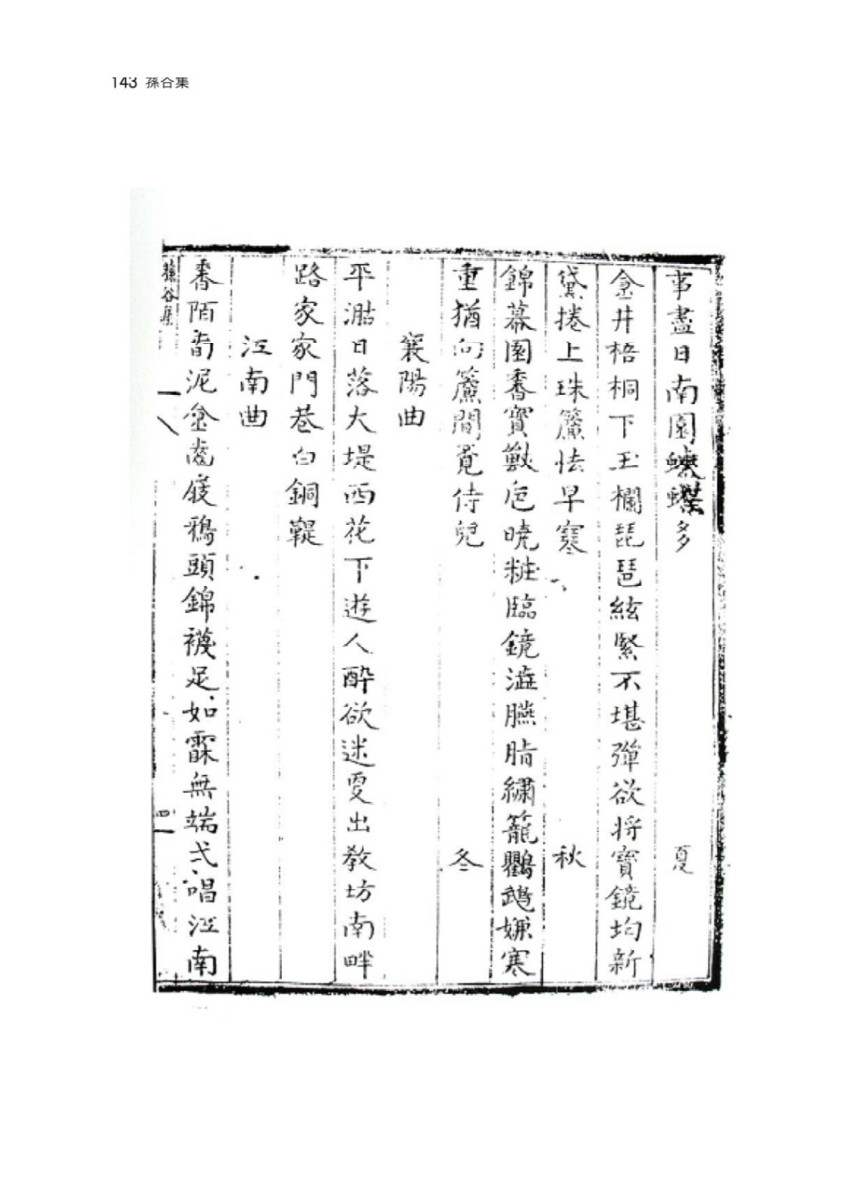 143 孫谷集
事盡日南園蛺蝶多 夏
金井梧桐下玉欄琵琶絃緊不堪彈欲將寶鏡均新
黛捲上珠簾怯早寒 秋
錦幕圍香寶獸危曉粧臨鏡澁臙脂繡籠鸚鵡嫌寒
重猶向簾間覓侍兒 冬
襄陽曲
平湖日落大堤西花下遊人醉欲迷更出教坊南畔
路家家門巷白銅鞮
江南曲
香陌留泥金齒屐鴉頭錦襪足如霜無端弌唱江南
蓀谷集 一 四一